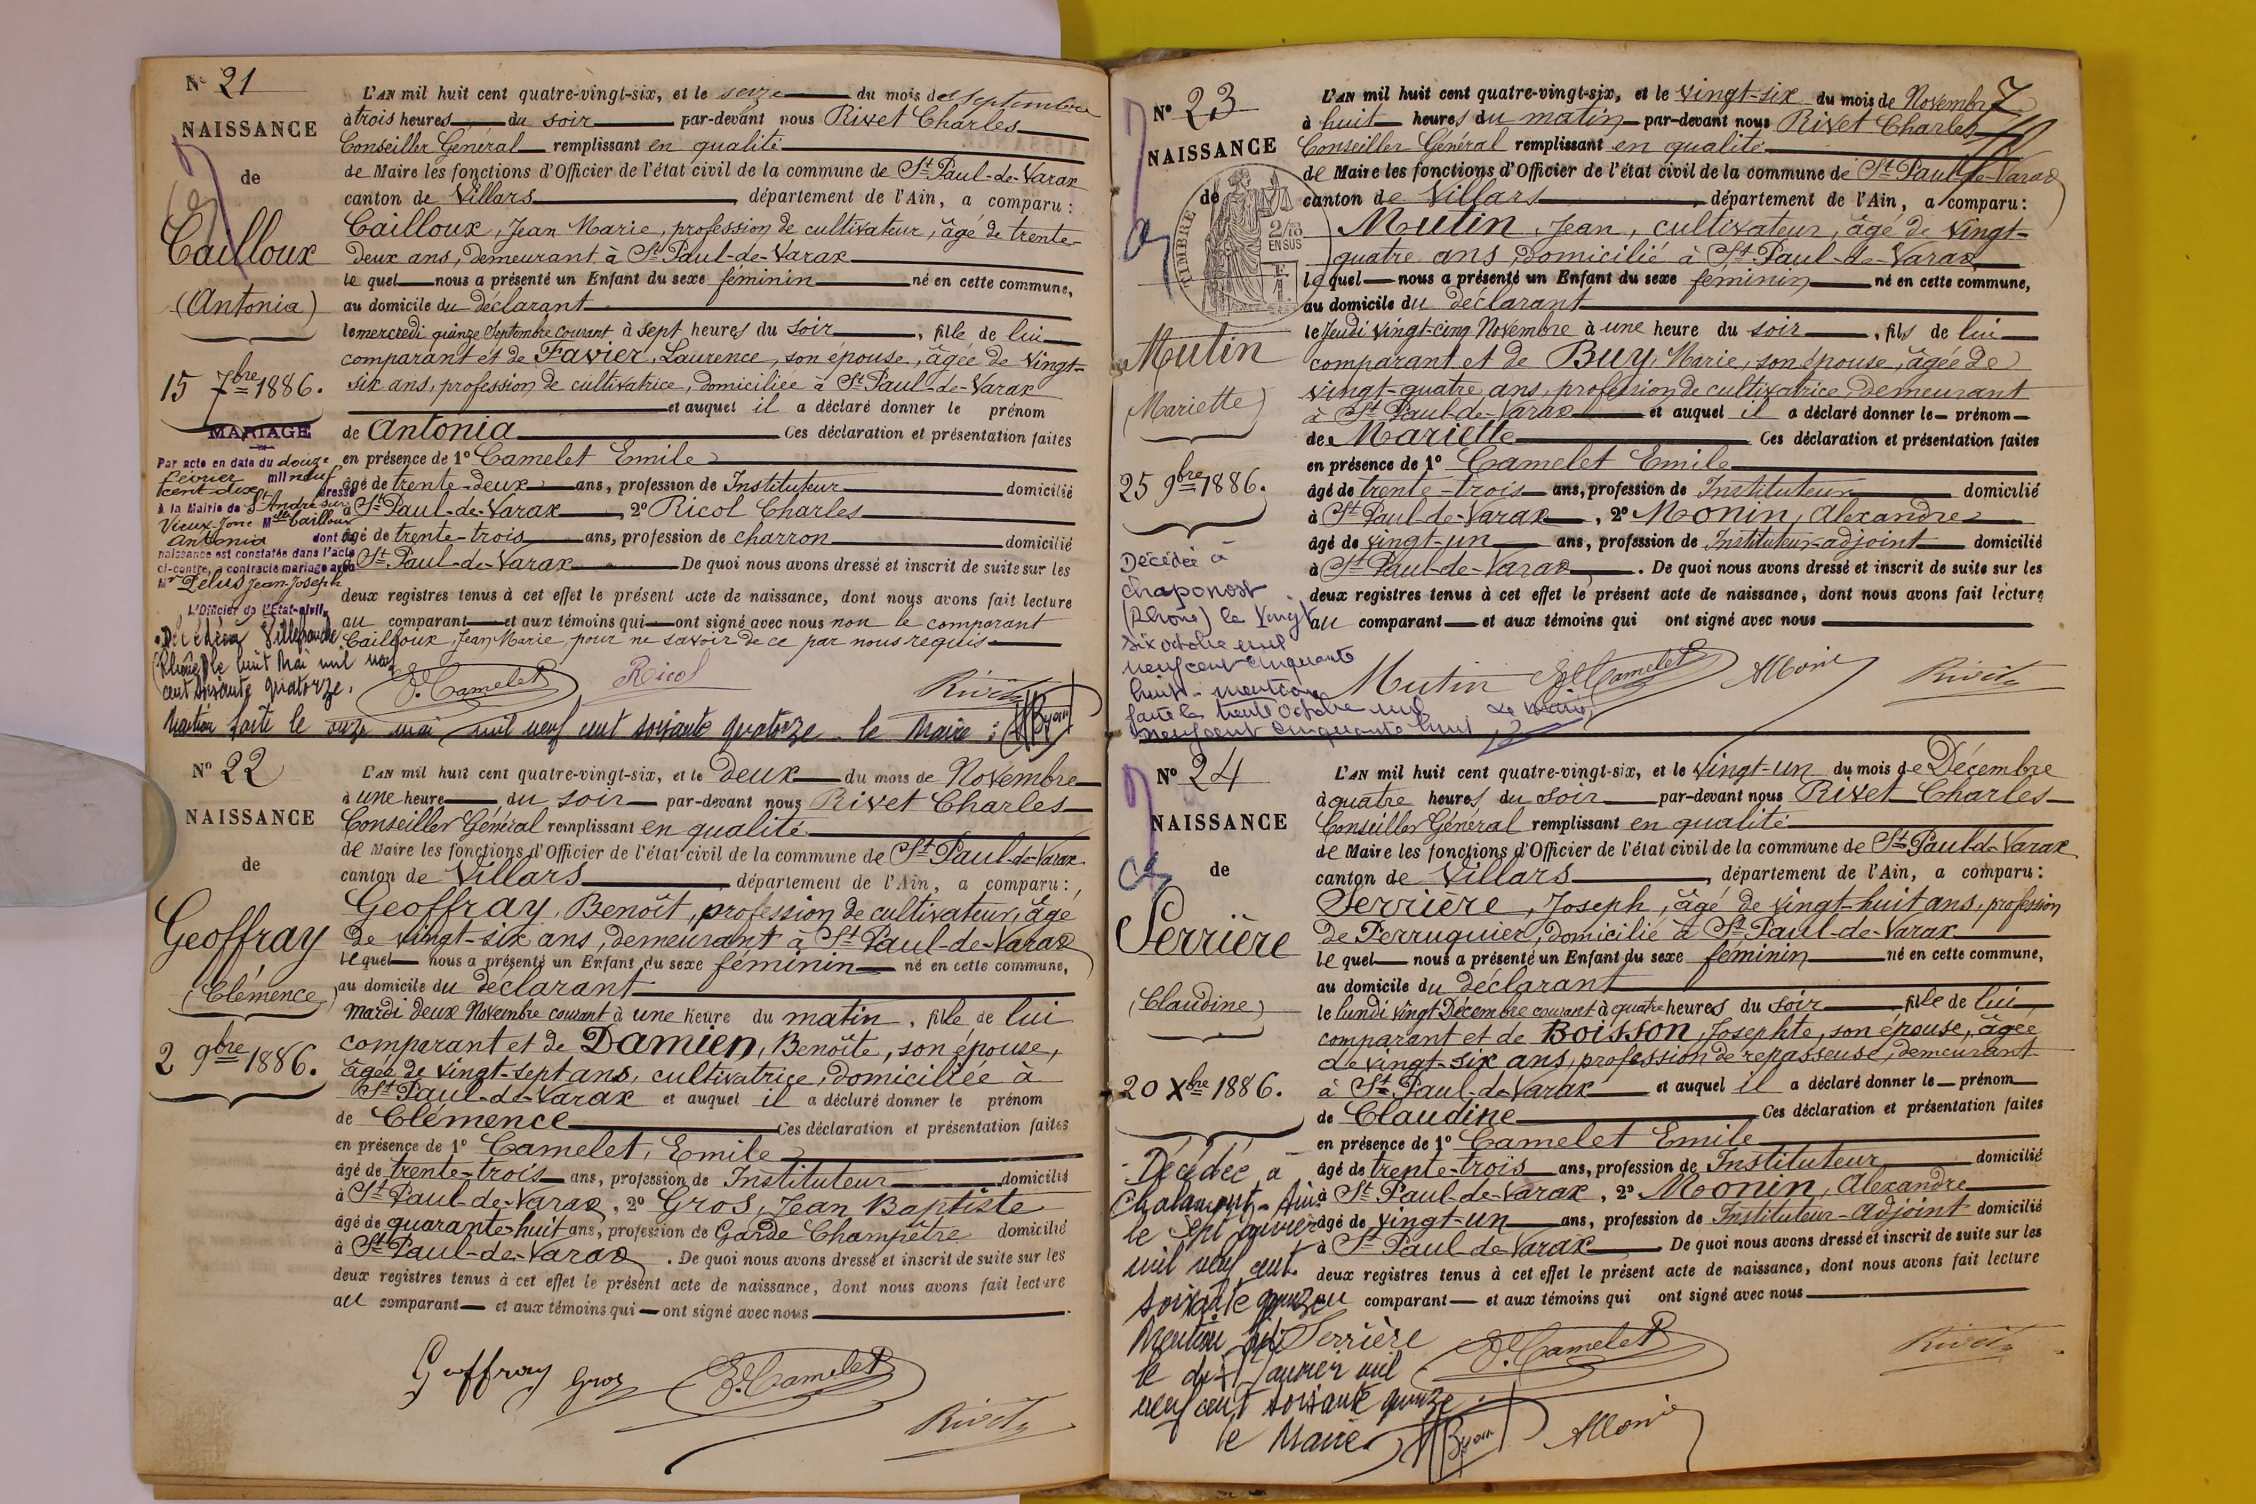 Nº 21
NAISSANCE
de
Cailloux
(Antonia)
15 7bre 1886.
MARIAGE
Par acte en date du douze
février mil neuf
cent dix dressé
à la Mairie de St André sur
Vieux-Jonc Mlle Cailloux
Antonia dont la
naissance est constatée dans l'acte
ci-contre, a contracté mariage avec
Mr Pelus Jean-Joseph
L'Officier de l'Etat-civil,
Décédée à Villefranche
(Rhône) le huit Mai mil neuf
cent soixante quatorze.
Mention faite le onze mai mil neuf cent soixante quatorze - le Maire :
L'AN mil huit cent quatre-vingt-six, et le seize du mois de septembre
à trois heures du soir par-devant nous Rivet Charles
Conseiller Général remplissant en qualité
de Maire les fonctions d'Officier de l'état civil de la commune de St Paul-de-Varax
canton de Villars, département de l'Ain, a comparu :
Cailloux, Jean Marie, profession de cultivateur, âgé de trente-
deux ans, demeurant à St Paul-de-Varax
le quel nous a présenté un Enfant du sexe féminin né en cette commune,
au domicile du déclarant
le mercredi quinze Septembre courant à sept heures du soir, fille de lui
comparant et de Favier, Laurence, son épouse, âgée de vingt-
six ans, profession de cultivatrice, domiciliée à St Paul-de-Varax
et auquel il a déclaré donner le prénom
de Antonia Ces déclaration et présentation faites
en présence de 1º Camelet Emile
âgé de trente-deux ans, profession de Instituteur domicilié
à St Paul-de-Varax, 2º Ricol Charles
âgé de trente-trois ans, profession de charron domicilié
à St Paul-de-Varax De quoi nous avons dressé et inscrit de suite sur les
deux registres tenus à cet effet le présent acte de naissance, dont nous avons fait lecture
au comparant et aux témoins qui ont signé avec nous non le comparant
Cailloux, Jean Marie, pour ne savoir de ce par nous requis
E. Camelet Ricol Rivet
Nº 22
NAISSANCE
de
Geoffray
(Clémence)
2 9bre 1886.
L'AN mil huit cent quatre-vingt-six, et le deux du mois de Novembre
à une heure du soir par-devant nous Rivet Charles
Conseiller Général remplissant en qualité
de Maire les fonctions d'Officier de l'état civil de la commune de St Paul-de-Varax
canton de Villars, département de l'Ain, a comparu :
Geoffray, Benoît, profession de cultivateur, âgé
de vingt-six ans, demeurant à St Paul-de-Varax
le quel nous a présenté un Enfant du sexe féminin né en cette commune,
au domicile du déclarant
mardi deux Novembre courant à une heure du matin, fille de lui
comparant et de Damien, Benoîte, son épouse,
âgée de vingt-sept ans, cultivatrice, domiciliée à
St Paul-de-Varax et auquel il a déclaré donner le prénom
de Clémence Ces déclaration et présentation faites
en présence de 1º Camelet, Emile
âgé de trente-trois ans, profession de Instituteur domicilié
à St Paul-de-Varax, 2º Gros, Jean Baptiste
âgé de quarante-huit ans, profession de Garde Champêtre domicilié
à St Paul-de-Varax. De quoi nous avons dressé et inscrit de suite sur les
deux registres tenus à cet effet le présent acte de naissance, dont nous avons fait lecture
au comparant et aux témoins qui ont signé avec nous
Geffray Gros E. Camelet
Rivet
7
Nº 23
NAISSANCE
de
TIMBRE
2/10
EN SUS
Mutin
(Mariette)
25 9bre 1886.
Décédée à
Chaponost
(Rhône) le vingt
six octobre mil
neuf cent cinquante
huit - mention
faite le trente octobre mil
neuf cent cinquante huit
Le Maire,
L'AN mil huit cent quatre-vingt-six, et le vingt-six du mois de Novembre
à huit heures du matin par-devant nous Rivet Charles
Conseiller Général remplissant en qualité
de Maire les fonctions d'Officier de l'état civil de la commune de St Paul-de-Varax
canton de Villars, département de l'Ain, a comparu :
Mutin, Jean, cultivateur, âgé de vingt-
quatre ans domicilié à St Paul-de-Varax
le quel nous a présenté un Enfant du sexe féminin né en cette commune,
au domicile du déclarant
le Jeudi vingt-cinq Novembre à une heure du soir, fils de lui
comparant et de Buy, Marie, son épouse, âgée de
vingt-quatre ans, profession de cultivatrice, demeurant
à St Paul-de-Varax et auquel il a déclaré donner le prénom
de Mariette Ces déclaration et présentation faites
en présence de 1º Camelet Emile
âgé de trente-trois ans, profession de Instituteur domicilié
à St Paul-de-Varax, 2º Monin, Alexandre
âgé de vingt-un ans, profession de Instituteur-adjoint domicilié
à St Paul-de-Varax. De quoi nous avons dressé et inscrit de suite sur les
deux registres tenus à cet effet le présent acte de naissance, dont nous avons fait lecture
au comparant et aux témoins qui ont signé avec nous
Mutin E. Camelet AMonin Rivet
Nº 24
NAISSANCE
de
Serrière
(Claudine)
20 Xbre 1886.
Décédée à
Chalamont - Ain
le sept janvier
mil neuf cent
soixante quinze
Mention faite
le dix Janvier mil
neuf cent soixante quinze :
le Maire
L'AN mil huit cent quatre-vingt-six, et le vingt-un du mois de Décembre
à quatre heures du soir par-devant nous Rivet Charles
Conseiller Général remplissant en qualité
de Maire les fonctions d'Officier de l'état civil de la commune de St Paul-de-Varax
canton de Villars, département de l'Ain, a comparu :
Serrière, Joseph, âgé de vingt-huit ans, profession
de Perruquier, domicilié à St Paul-de-Varax
le quel nous a présenté un Enfant du sexe féminin né en cette commune,
au domicile du déclarant
le lundi vingt Décembre courant à quatre heures du soir, fille de lui
comparant et de Boisson, Josephte, son épouse, âgée
de vingt-six ans, profession de repasseuse, demeurant
à St Paul-de-Varax et auquel il a déclaré donner le prénom
de Claudine Ces déclaration et présentation faites
en présence de 1º Camelet Emile
âgé de trente-trois ans, profession de Instituteur domicilié
à St Paul-de-Varax, 2º Monin, Alexandre
âgé de vingt-un ans, profession de Instituteur-adjoint domicilié
à St Paul-de-Varax De quoi nous avons dressé et inscrit de suite sur les
deux registres tenus à cet effet le présent acte de naissance, dont nous avons fait lecture
au comparant et aux témoins qui ont signé avec nous
Serrière E. Camelet Rivet
AMonin